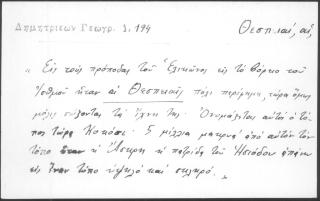 Δημητριέων Γεωγρ. 1. 194
Θεσπιαί, αἱ,
" Εἰς τοὺς πρόποδας τοῦ Ἑλικῶνος εἰς τὸ βόρειο τοῦ
Ἰσθμοῦ ἦταν αἱ Θεσπιαί, πόλι περίφημη, τώρα ὅμως
μόλις σώζονται τὰ ἴχνη της. Ὀνομάζεται αὐτὸ ὁ τό-
πος τώρα Κακόσι. 5 μίλλια μακρυὰ ἀπὸ αὐτὸν τὸν
τόπο ἦταν ἡ Ἄσκρη ἡ πατρίδα τοῦ Ἡσιόδου ἐπάνω
εἰς ἕναν τόπο ὑψηλὸ καὶ σκληρό.